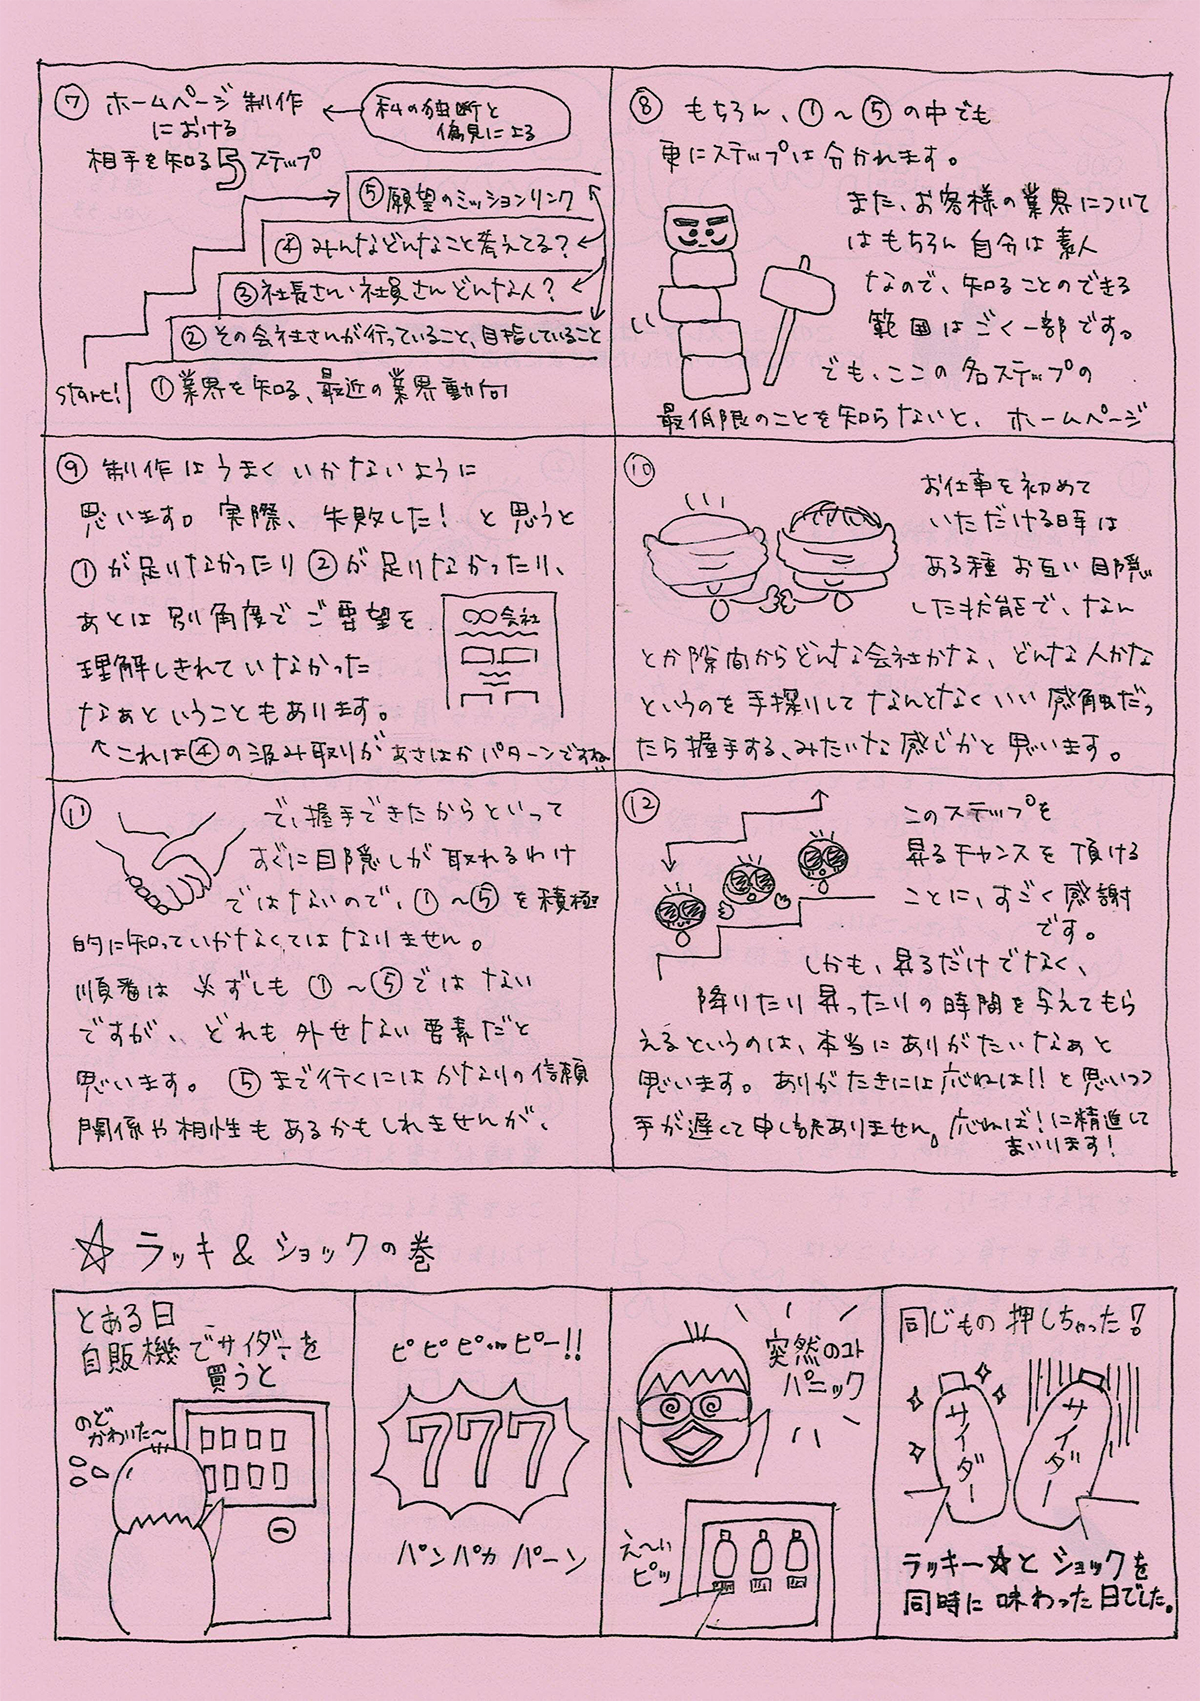 ⑦ ホームページ制作
における
相手を知る5ステップ
私の独断と
偏見による
⑤願望のミッションリンク
④みんなどんなこと考えてる？
③社長さん・社員さんどんな人？
②その会社さんが行っていること、目指していること
start!
①業界を知る、最近の業界動向
⑧ もちろん、①〜⑤の中でも
更にステップは分かれます。
また、お客様の業界について
はもちろん自分は素人
なので、知ることのできる
範囲はごく一部です。
でも、ここの各ステップの
最低限のことを知らないと、ホームページ
⑨ 制作はうまくいかないように
思います。実際、失敗した！と思うと
①が足りなかったり②が足りなかったり、
あとは別角度でご要望を
理解しきれていなかった
なぁということもあります。
↑これは④の汲み取りがあさはかパターンですね
〇〇会社
⑩
お仕事を初めて
いただける時は
ある種お互い目隠
した状態で、なん
とか隙間からどんな会社かな、どんな人かな
というのを手探りしてなんとなくいい感触だっ
たら握手する、みたいな感じかと思います。
⑪
で、握手できたからといって
すぐに目隠しが取れるわけ
ではないので、①〜⑤を積極
的に知っていかなくてはなりません。
順番は必ずしも①〜⑤ではない
ですが、どれも外せない要素だと
思います。⑤まで行くにはかなりの信頼
関係や相性もあるかもしれませんが、
⑫
このステップを
昇るチャンスを頂ける
ことに、すごく感謝
です。
しかも、昇るだけでなく、
降りたり昇ったりの時間を与えてもら
えるというのは、本当にありがたいなぁと
思います。ありがたきには応ねば!!と思いつつ
手が遅くて申し訳ありません。応ねば！に精進して
まいります！
☆ ラッキ&ショックの巻
とある日
自販機でサイダーを
買うと
のど
かわいた〜
ピピピ…ピー!!
777
パンパカパーン
突然のコト
パニック
え〜い
ピッ
同じもの押しちゃった？
サイダー
サイダー
ラッキー☆とショックを
同時に味わった日でした。